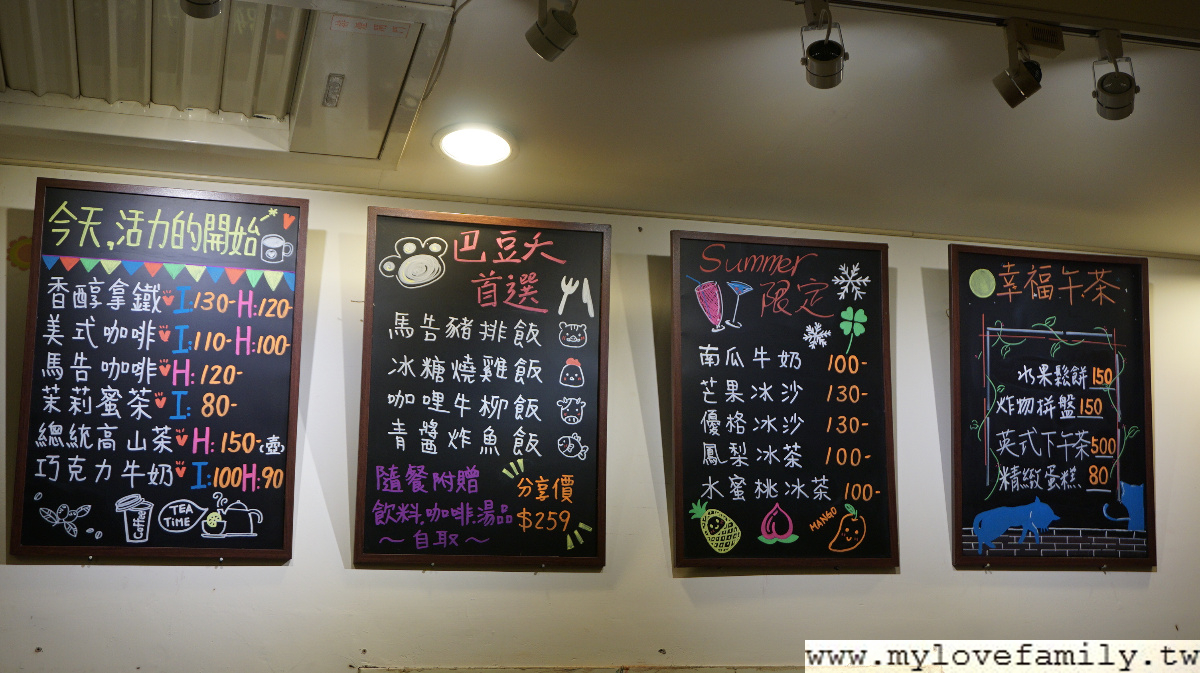 今天,活力的開始
香醇拿鐵 I:130- H:120-
美式咖啡 I:110- H:100-
馬告咖啡 H:120-
茉莉蜜茶 I:80-
總統高山茶 H:150-(壺)
巧克力牛奶 I:100 H:90
Coffee
TEA
TiME
巴豆夭
首選
馬告豬排飯
冰糖燒雞飯
咖哩牛柳飯
青醬炸魚飯
隨餐附贈
飲料.咖啡.湯品
~自取~
分享價
$259
Summer
限定
南瓜牛奶 100-
芒果冰沙 130-
優格冰沙 130-
鳳梨冰茶 100-
水蜜桃冰茶 100-
MANGO
幸福午茶
水果鬆餅 150
炸物拼盤 150
英式下午茶 500
精緻蛋糕 80
www.mylovefamily.tw